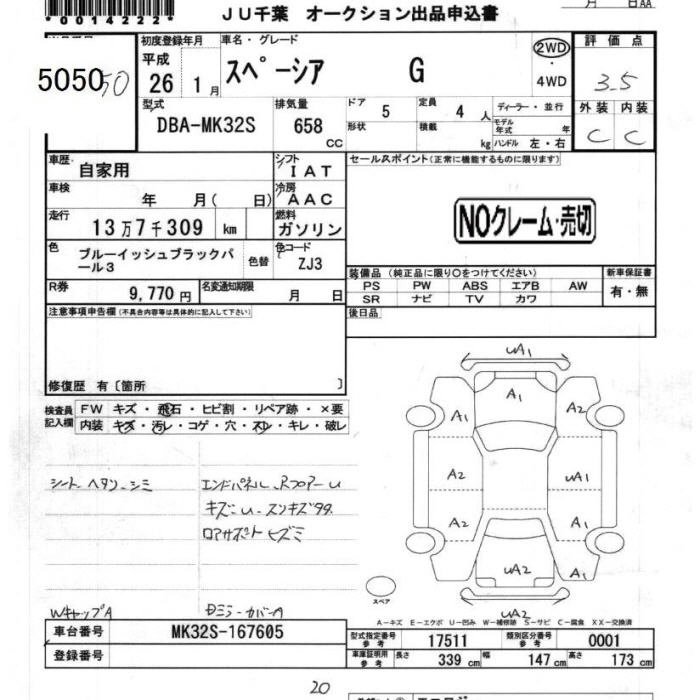 *0014222*
JU千葉 オークション出品申込書
月 日AA
505050
初度登録年月
平成
26 1月
車名・グレード
スペーシア G
2WD
・
4WD
評価点
3.5
外装 内装
C C
型式
DBA-MK32S
排気量
658
CC
ドア 5
形状
定員 4 人
積載 kg
ディーラー・並行
モデル年式 年
ハンドル 左・右
車歴 自家用
シフト IAT
車検 年 月( 日)
冷房 AAC
走行 13万7千309 km
燃料 ガソリン
色 ブルーイッシュブラックパール3
色替
色コード ZJ3
R券 9,770円
名変通知期限 月 日
セールスポイント(正常に機能するものに限ります)
NOクレーム・売切
装備品 (純正品に限り○をつけてください)
PS PW ABS エアB AW
SR ナビ TV カワ
新車保証書
有・無
後日品
注意事項申告欄(不具合内容等は具体的に記入して下さい)
修復歴 有〔箇所 〕
検査員記入欄
FW キズ・飛石・ヒビ割・リペア跡・×要
内装 キズ・汚レ・コゲ・穴・スレ・キレ・破レ
シート ヘタリ シミ
エンドパネル Rフロアー U
キズ U
ロアサポート ヒズミ
WキャップA
uA1
A1
A1 A2
A2 uA1
A2 A1
uA2 A1
uA2
スペア
A－キズ E－エクボ U－凹み W－補修跡 S－サビ C－腐食 XX－交換済
車台番号 MK32S-167605
登録番号
型式指定番号 参考 17511
類別区分番号 参考 0001
車庫証明用 参考 長さ 339cm 幅 147cm 高さ 173cm
20